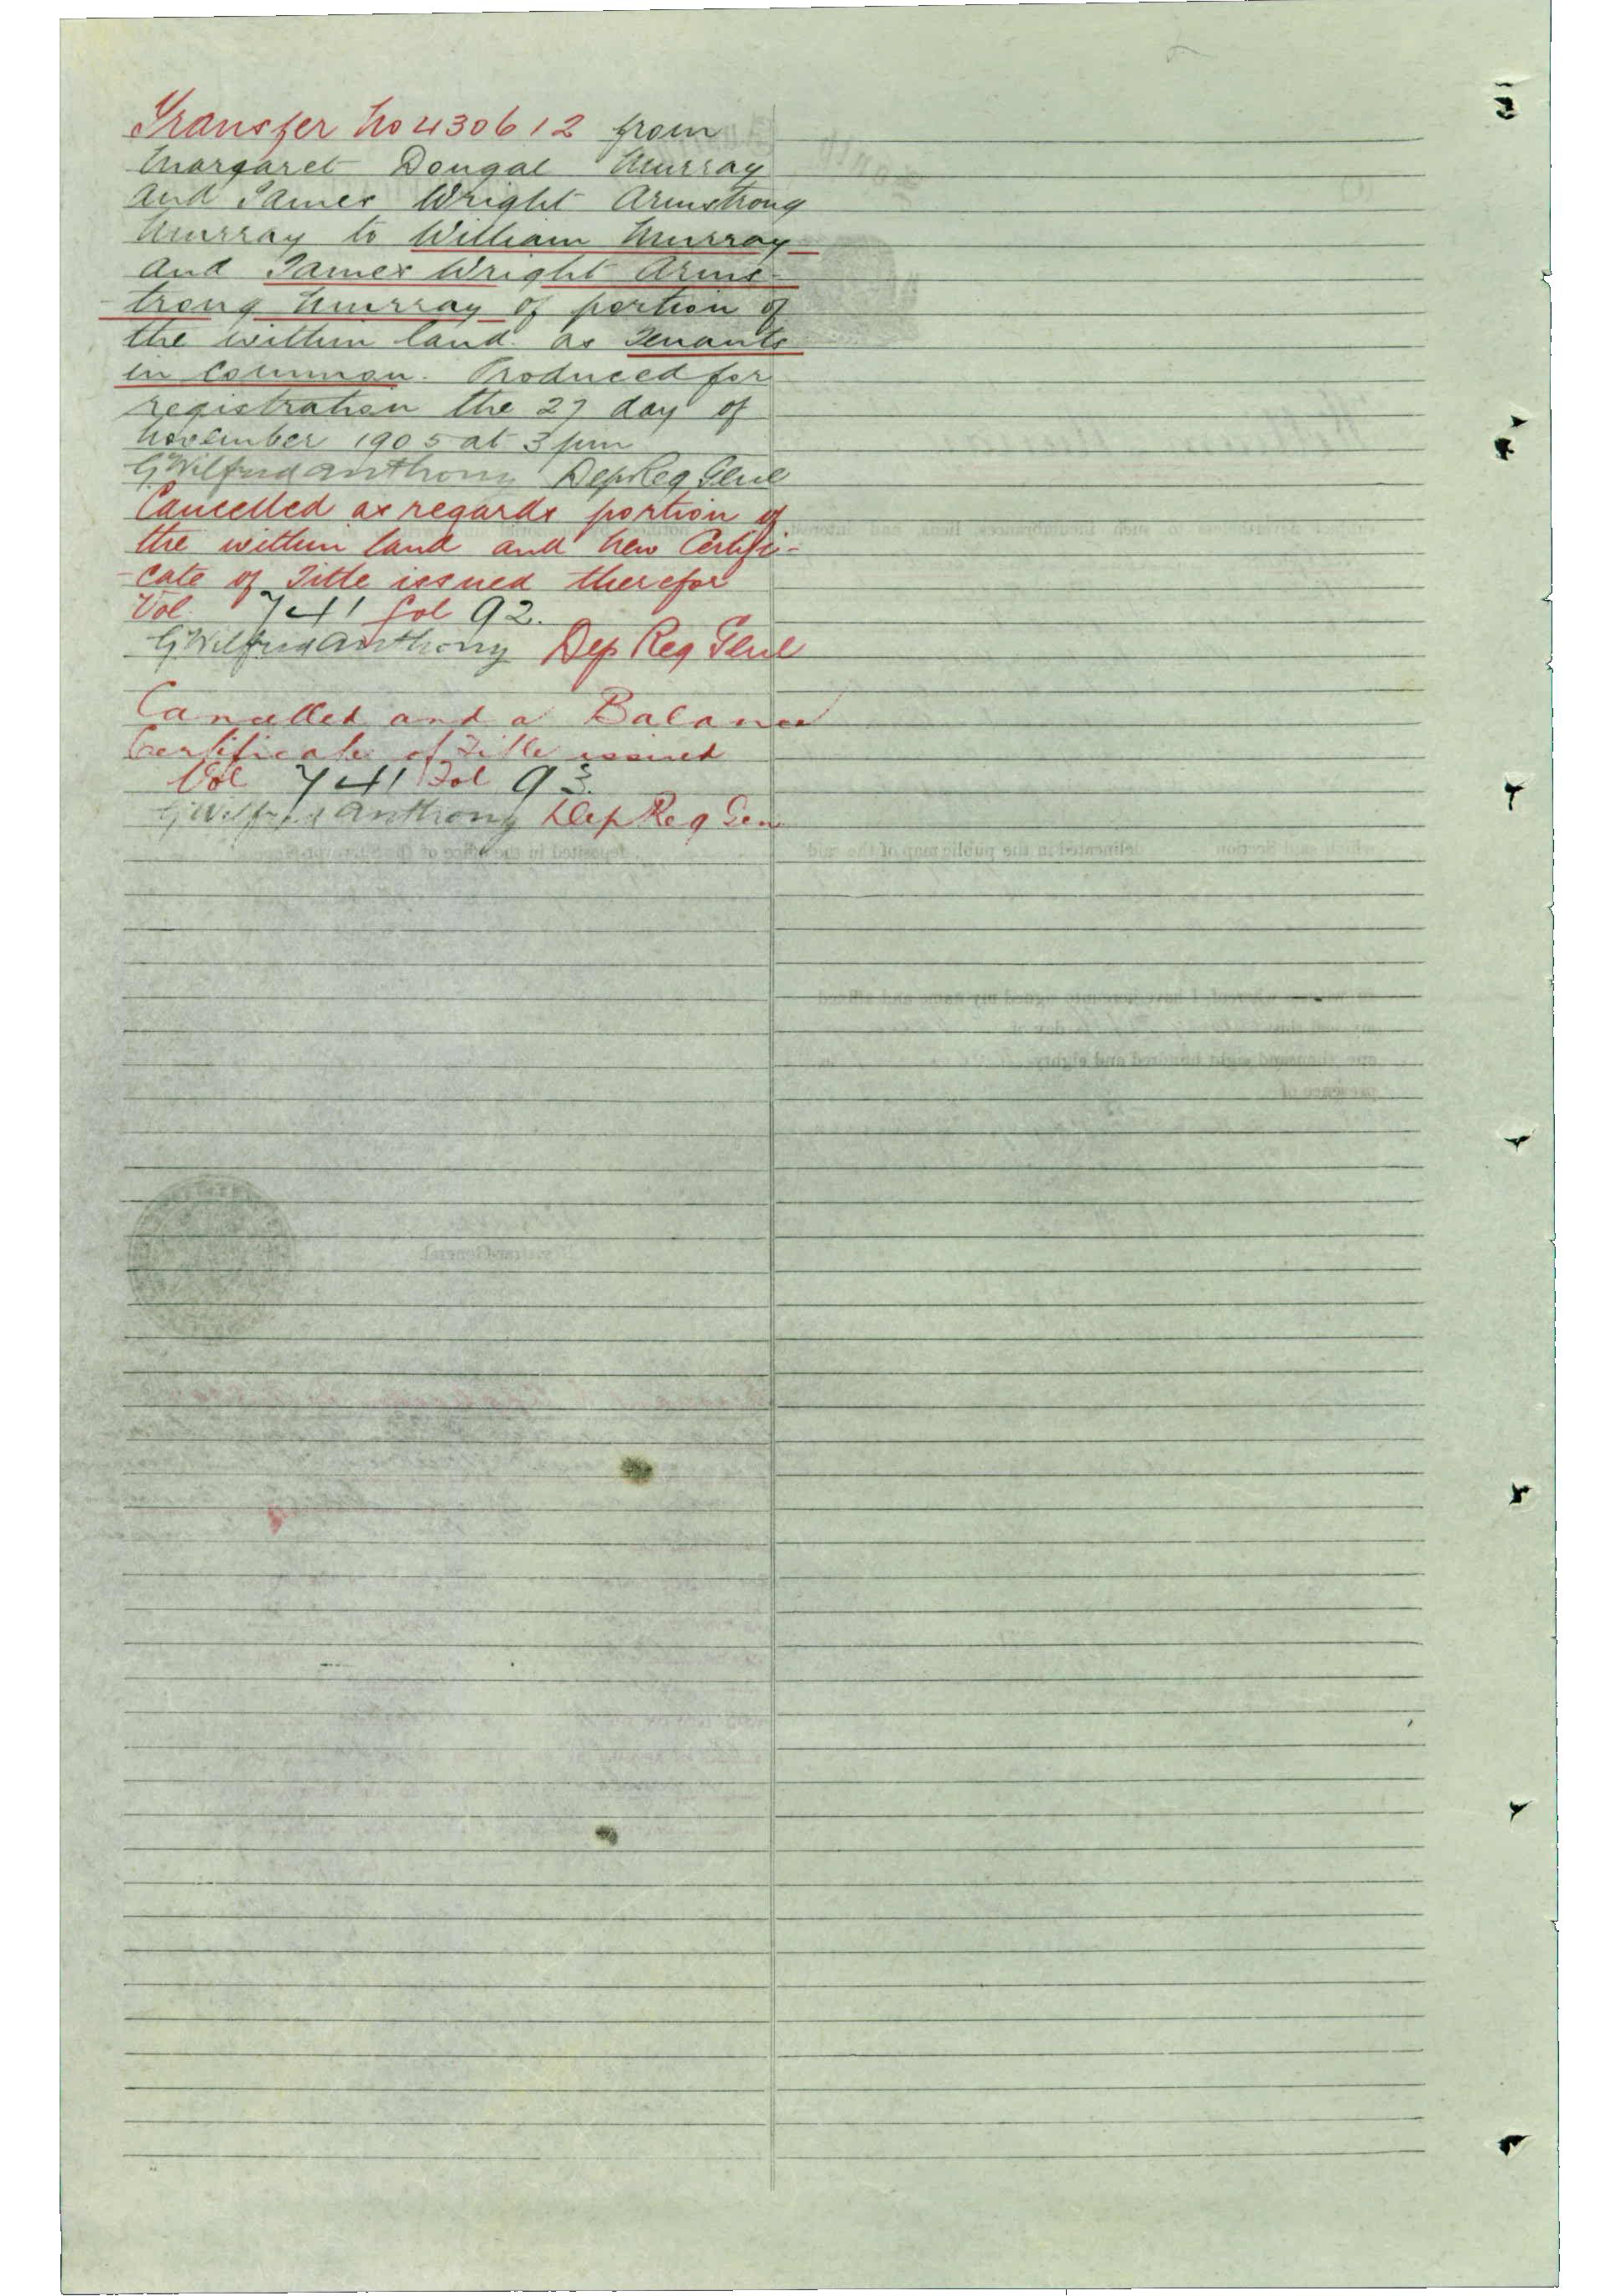 Transfer No 430612 from
Margaret Dougal Murray
and James Wright Armstrong
Murray to William Murray
and James Wright Arms-
-trong Murray of portion of
the within land as Tenants
in common. Produced for
registration the 27 day of
November 1905 at 3 pm
G Wilfrid Anthony Dep Reg Genl
Cancelled as regards portion of
the within land and New Certifi-
-cate of Title issued therefor
Vol 741 fol 92.
G Wilfrid Anthony Dep Reg Genl
Cancelled and a Balance
Certificate of Title issued
Vol 741 Fol 93.
G Wilfrid Anthony Dep Reg Gen